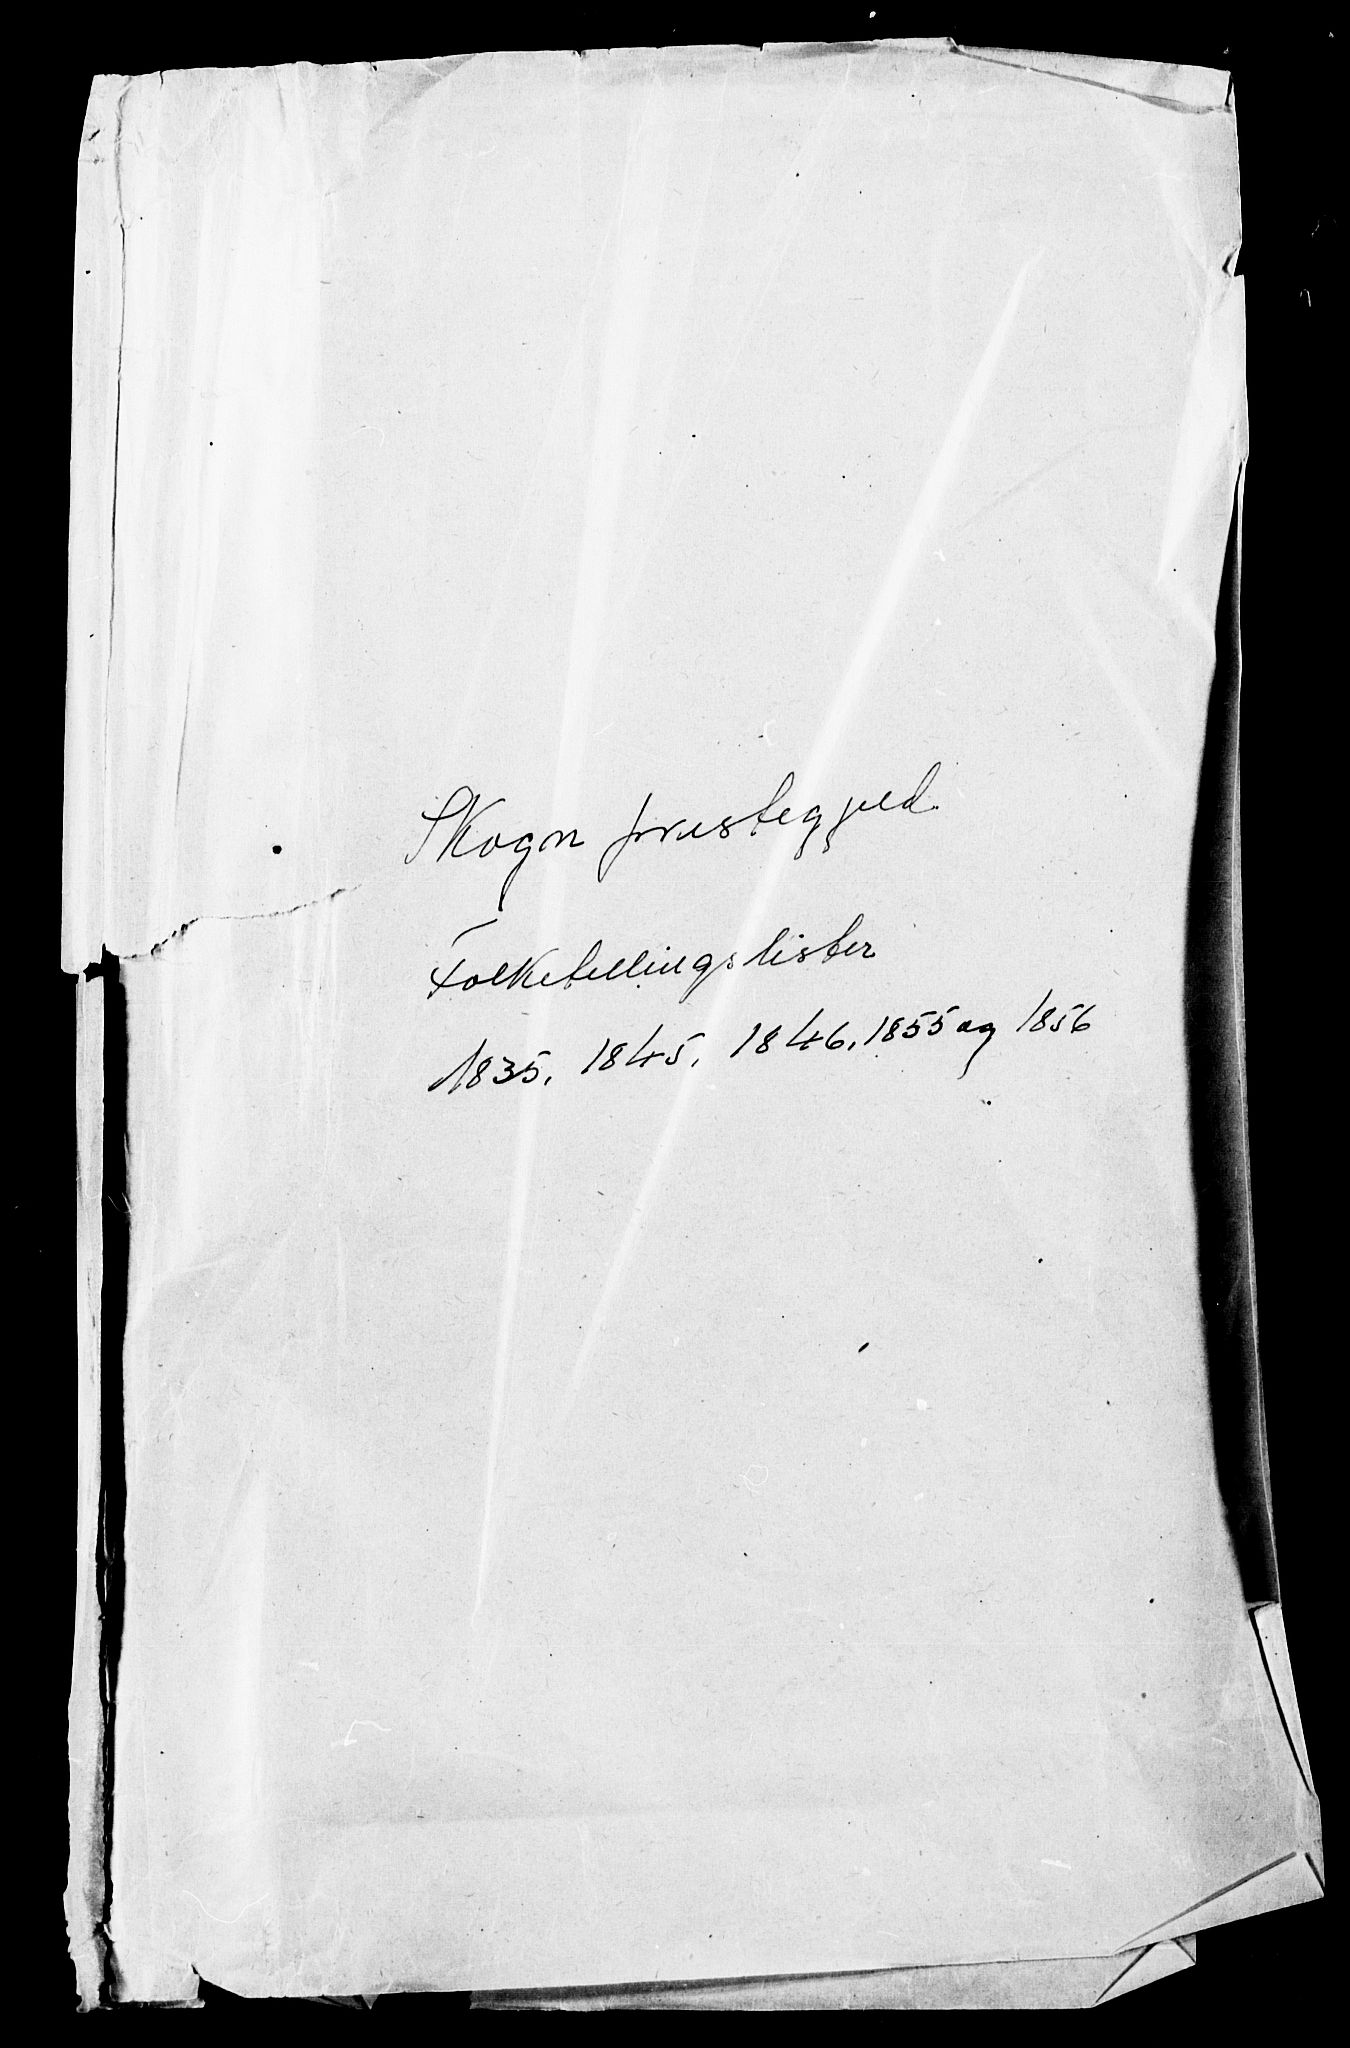 Skogn prestegjeld.
Folketellingslister
1835, 1845, 1846, 1855 og 1856